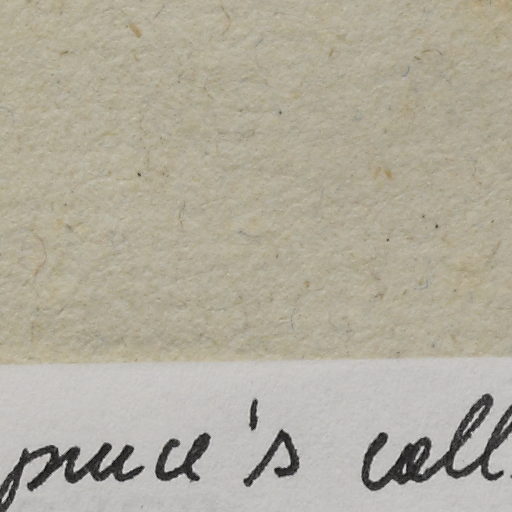 pruce's coll.